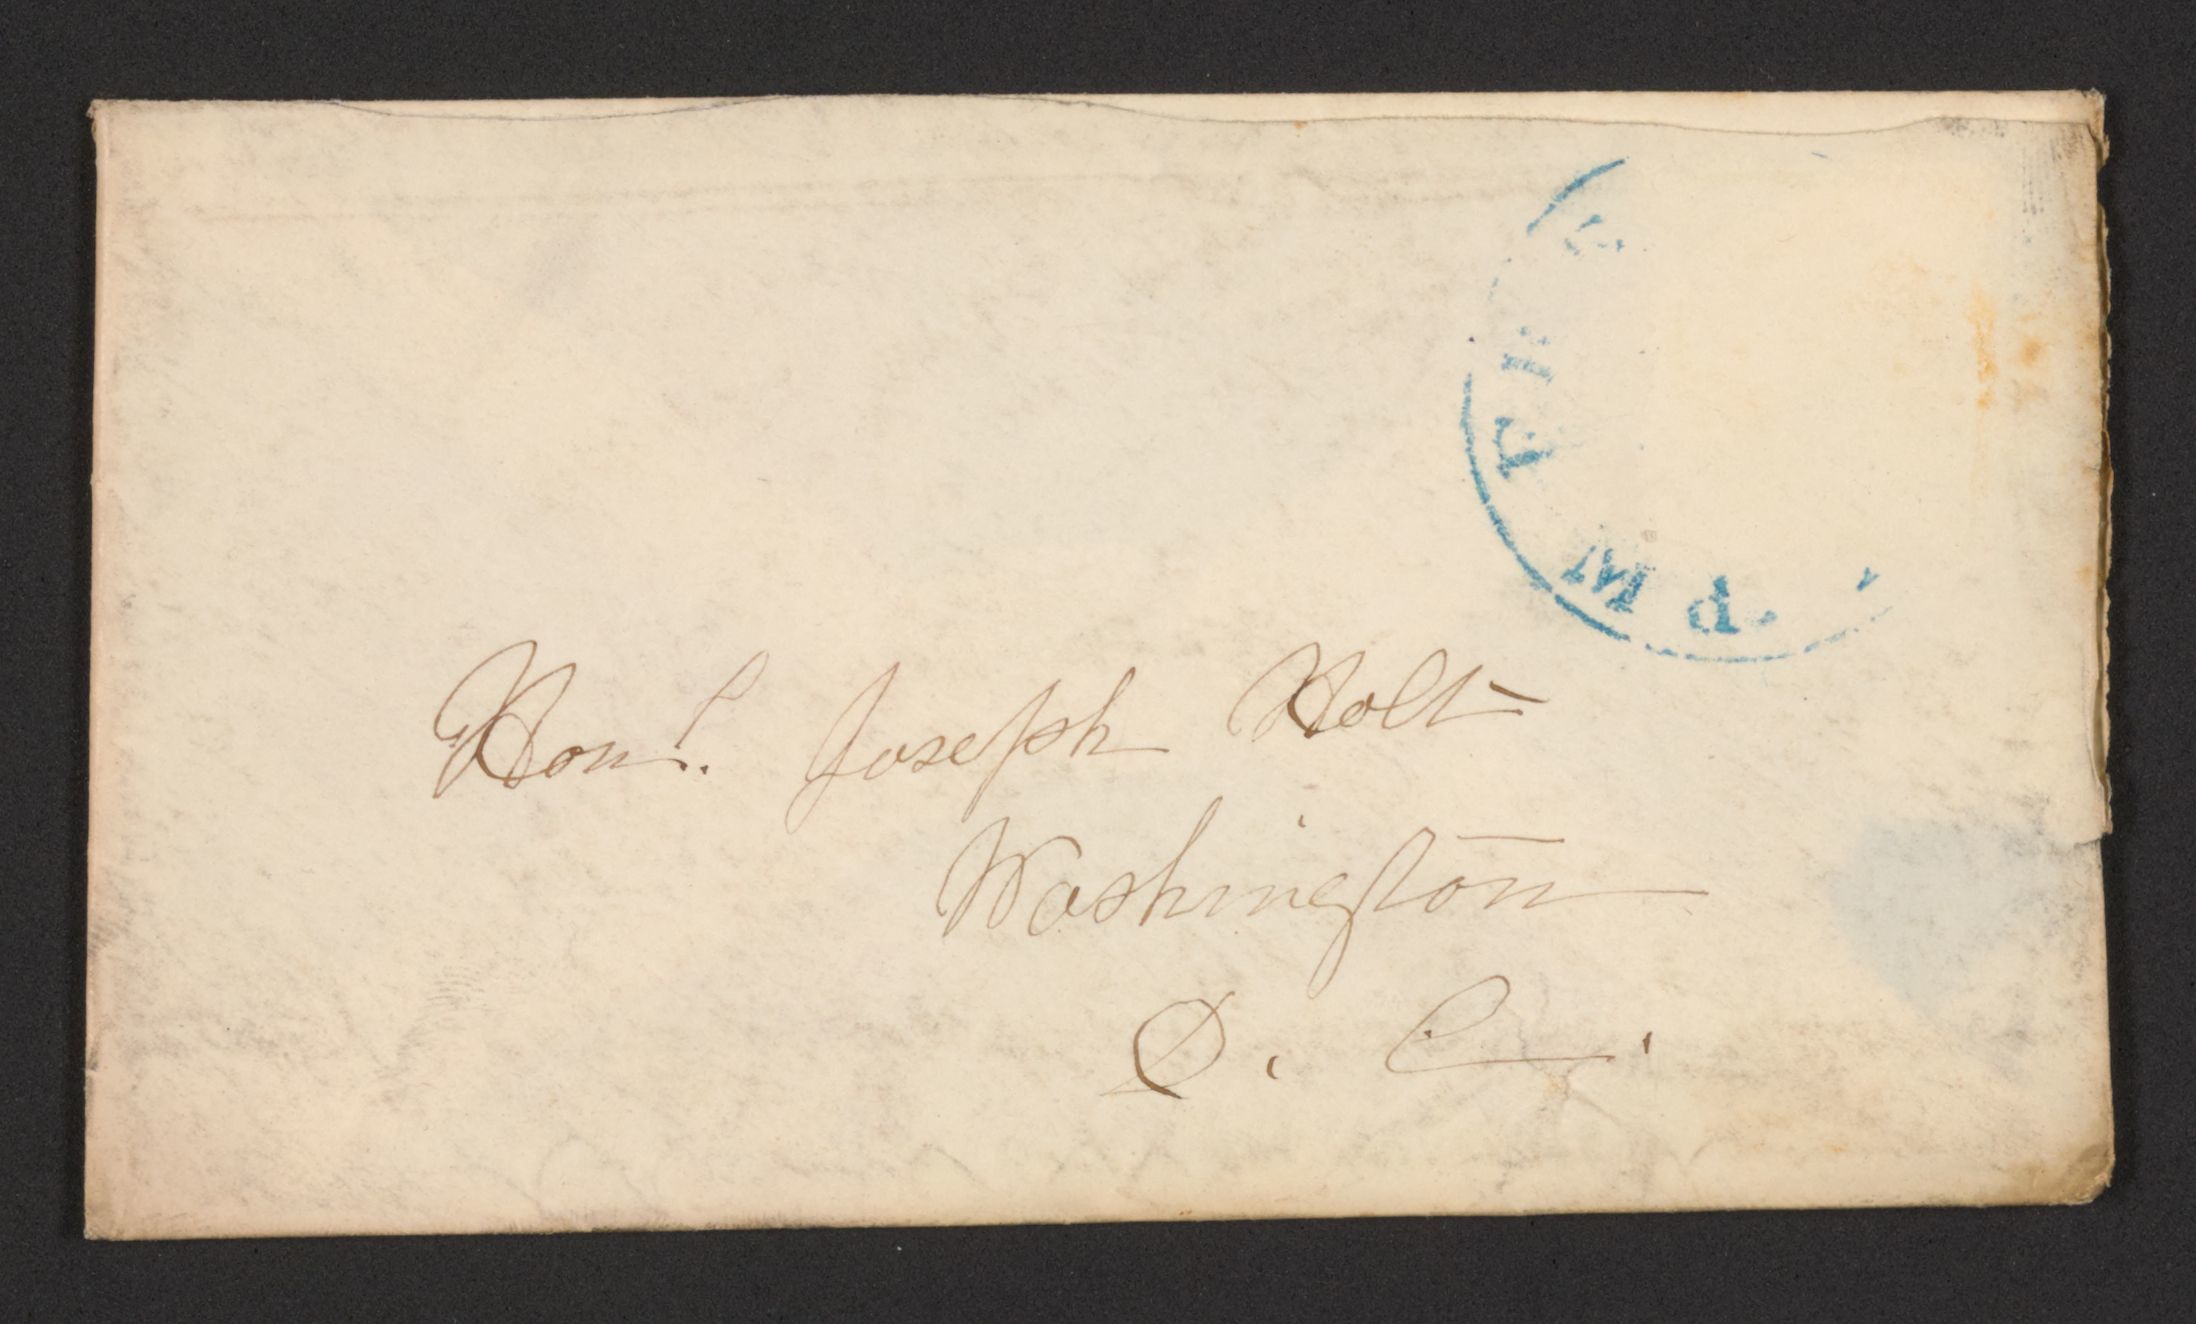 Honl. Joseph Holt
Washington
D. C.